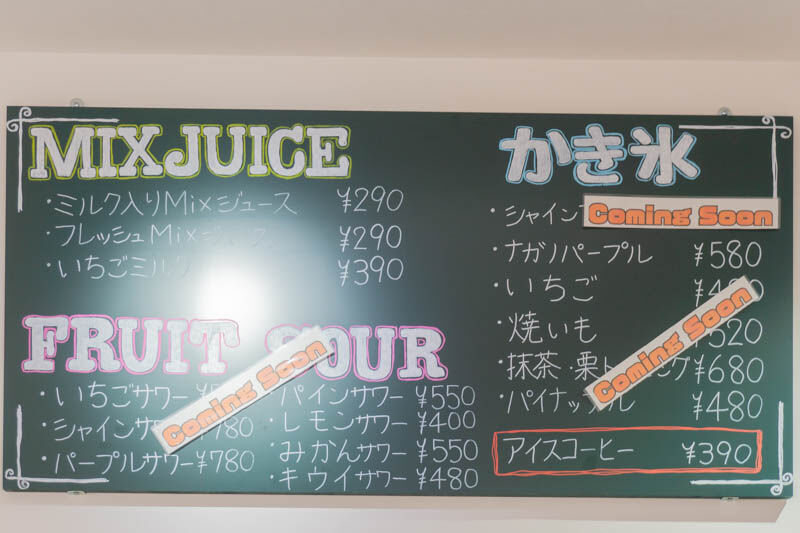 MIXJUICE
・ミルク入りMixジュース ¥290
・フレッシュMix ¥290
・いちごミルク ¥390
FRUIT SOUR
・いちごサワー
・シャインサ 780
・パープルサワー ¥780
・パインサワー ¥550
・レモンサワー ¥400
・みかんサワー ¥550
・キウイサワー ¥480
Coming Soon
かき氷
・シャイン
Coming Soon
・ナガノパープル ¥580
・いちご
・焼いも 520
・抹茶・栗ト グ ¥680
・パイナップル ¥480
Coming Soon
アイスコーヒー ¥390